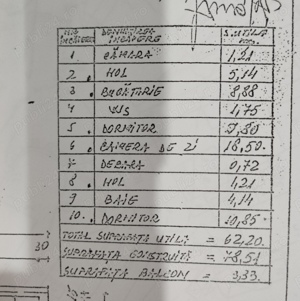 NR. DENUMIREA S.UTILĂ
ÎNCĂPERE
1 CĂMARA 1,21
2. HOL 5,14
3. BUCĂTĂRIE 8,88
4 WS 1,75
5. DORMITOR
6. CAMERA DE ZI 16,50
7 DEBARA 0,72
8. HOL
9 BAIE 4,14
10. DORMITOR 10,85
TOTAL SUPRAFAȚA UTILĂ = 62,20
SUPRAFAȚA CONSTRUITĂ = 78,54
SUPRAFAȚA BALCON = 3,33
30